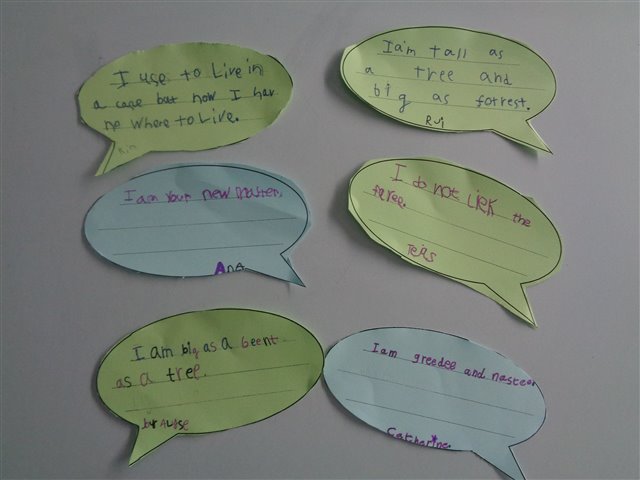 I use to Live in
a cage but now I hav
no where to Live.
I am tall as
a tree and
big as forrest.
Rui
I am Your new Master.
Ana
I do not LieK the
faree.
Tejas
I am big as a beent
as a tree
by
I am greedee and nastee
Catharine